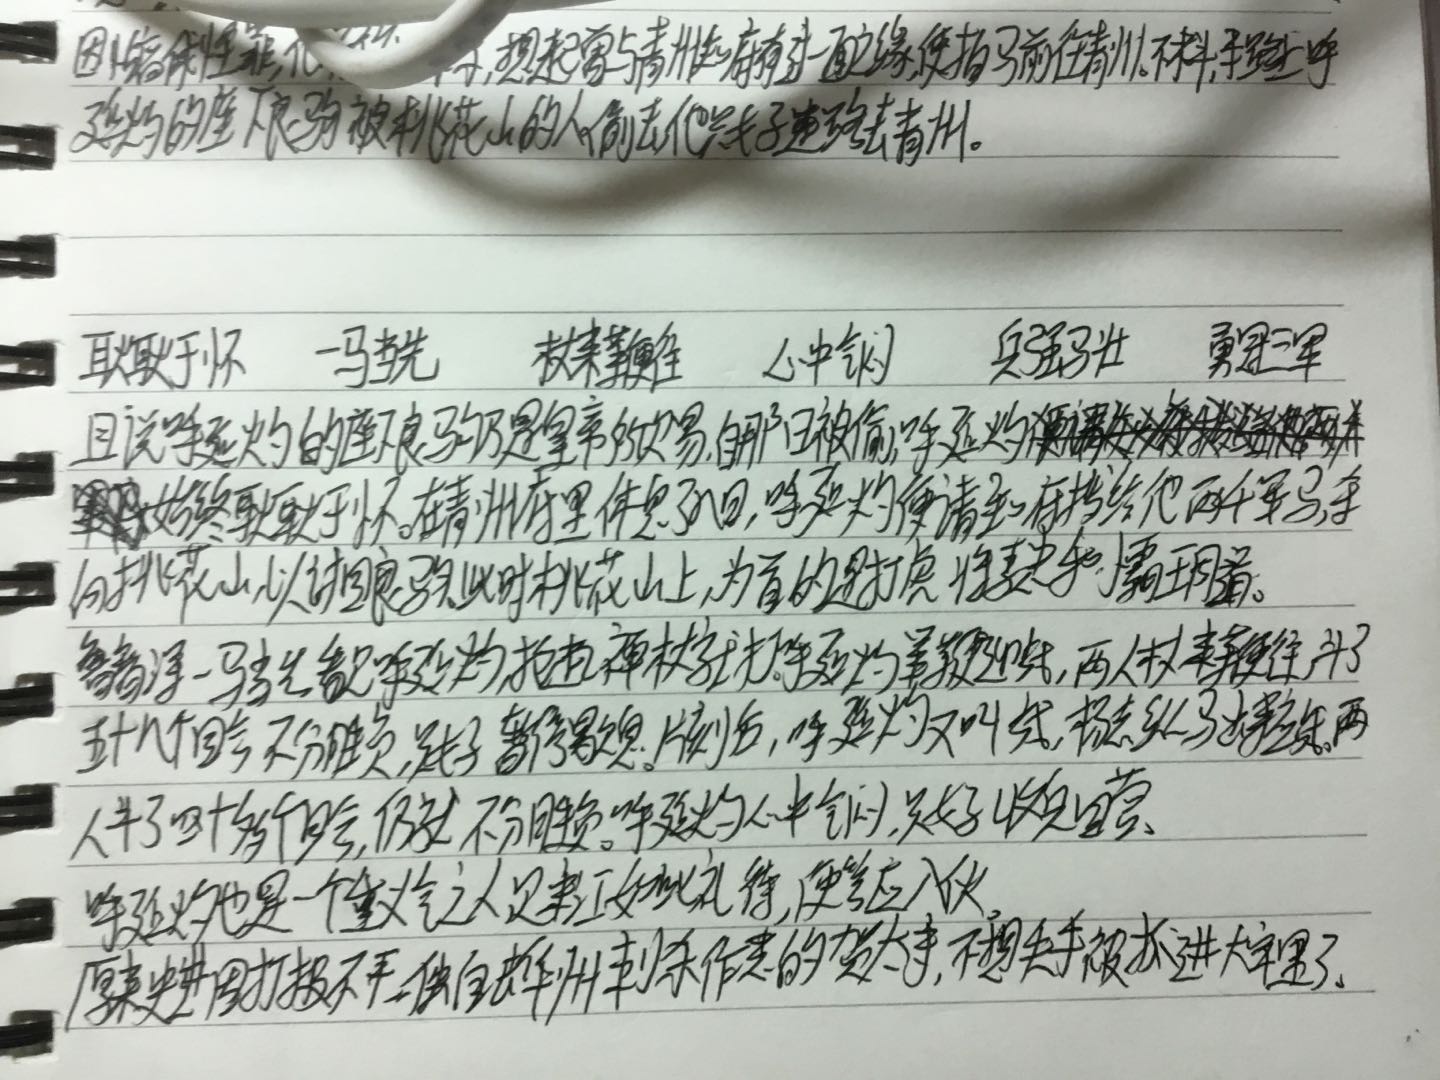 想起曾与青州知府有过一面之缘,便拍马前往青州。不料,半路上呼
延灼的座下良驹被桃花山的人偷去,他只好连路去青州。
耿耿于怀 一马当先 杖来鞭往 心中气闷 兵强马壮 勇冠三军
且说呼延灼的座下良驹乃是皇帝所赐,自那日被偷,呼延灼
始终耿耿于怀。在青州府里休息了八日,呼延灼便请知府拨给他两千军马,杀
向桃花山,以讨回良驹。此时桃花山上,为首的是打虎将李忠和小霸王周通。
鲁智深一马当先看见呼延灼,抡起禅杖就打。呼延灼举鞭迎战,两人杖来鞭往,斗了
五十几个回合不分胜负,只好暂停歇息。片刻后,呼延灼又叫战,杨志纵马出来应战。两
人斗了四十多个回合,仍就不分胜负。呼延灼心中气闷,只好收兵回营。
呼延灼也是一个重义气之人,见宋江如此礼待,便答应入伙。
原来史进因打抱不平,独自去华州刺杀作恶的贺太守,不想失手被抓进大牢里了。